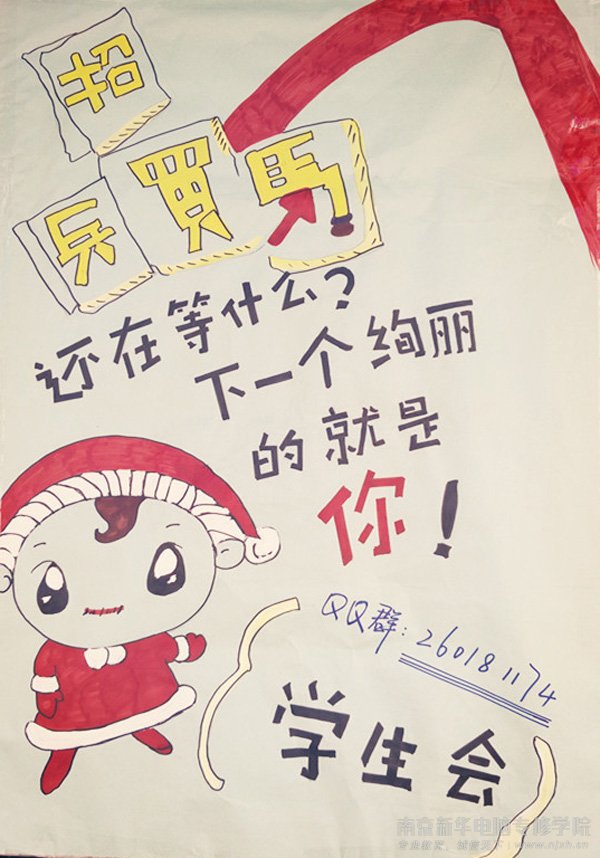 招
兵買馬
还在等什么?
下一个绚丽
的就是
你!
QQ群:260181174
学生会
南京新华电脑专修学院
专业教育,诚信天下:www.njxh.cn